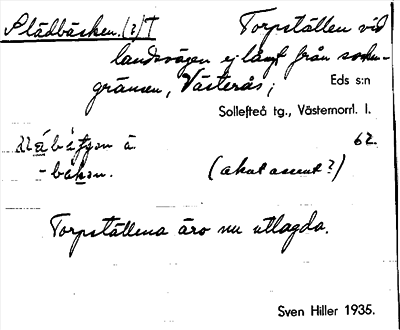 Slädbäcken. (?) T Torpställen vid
landsvägen ej långt från socken-
gränsen, Västerås, Eds s:n
Sollefteå tg., Västernorrl. l.
62.
-bäkan. (akut accent?)
Torpställena äro nu utlagda.
Sven Hiller 1935.